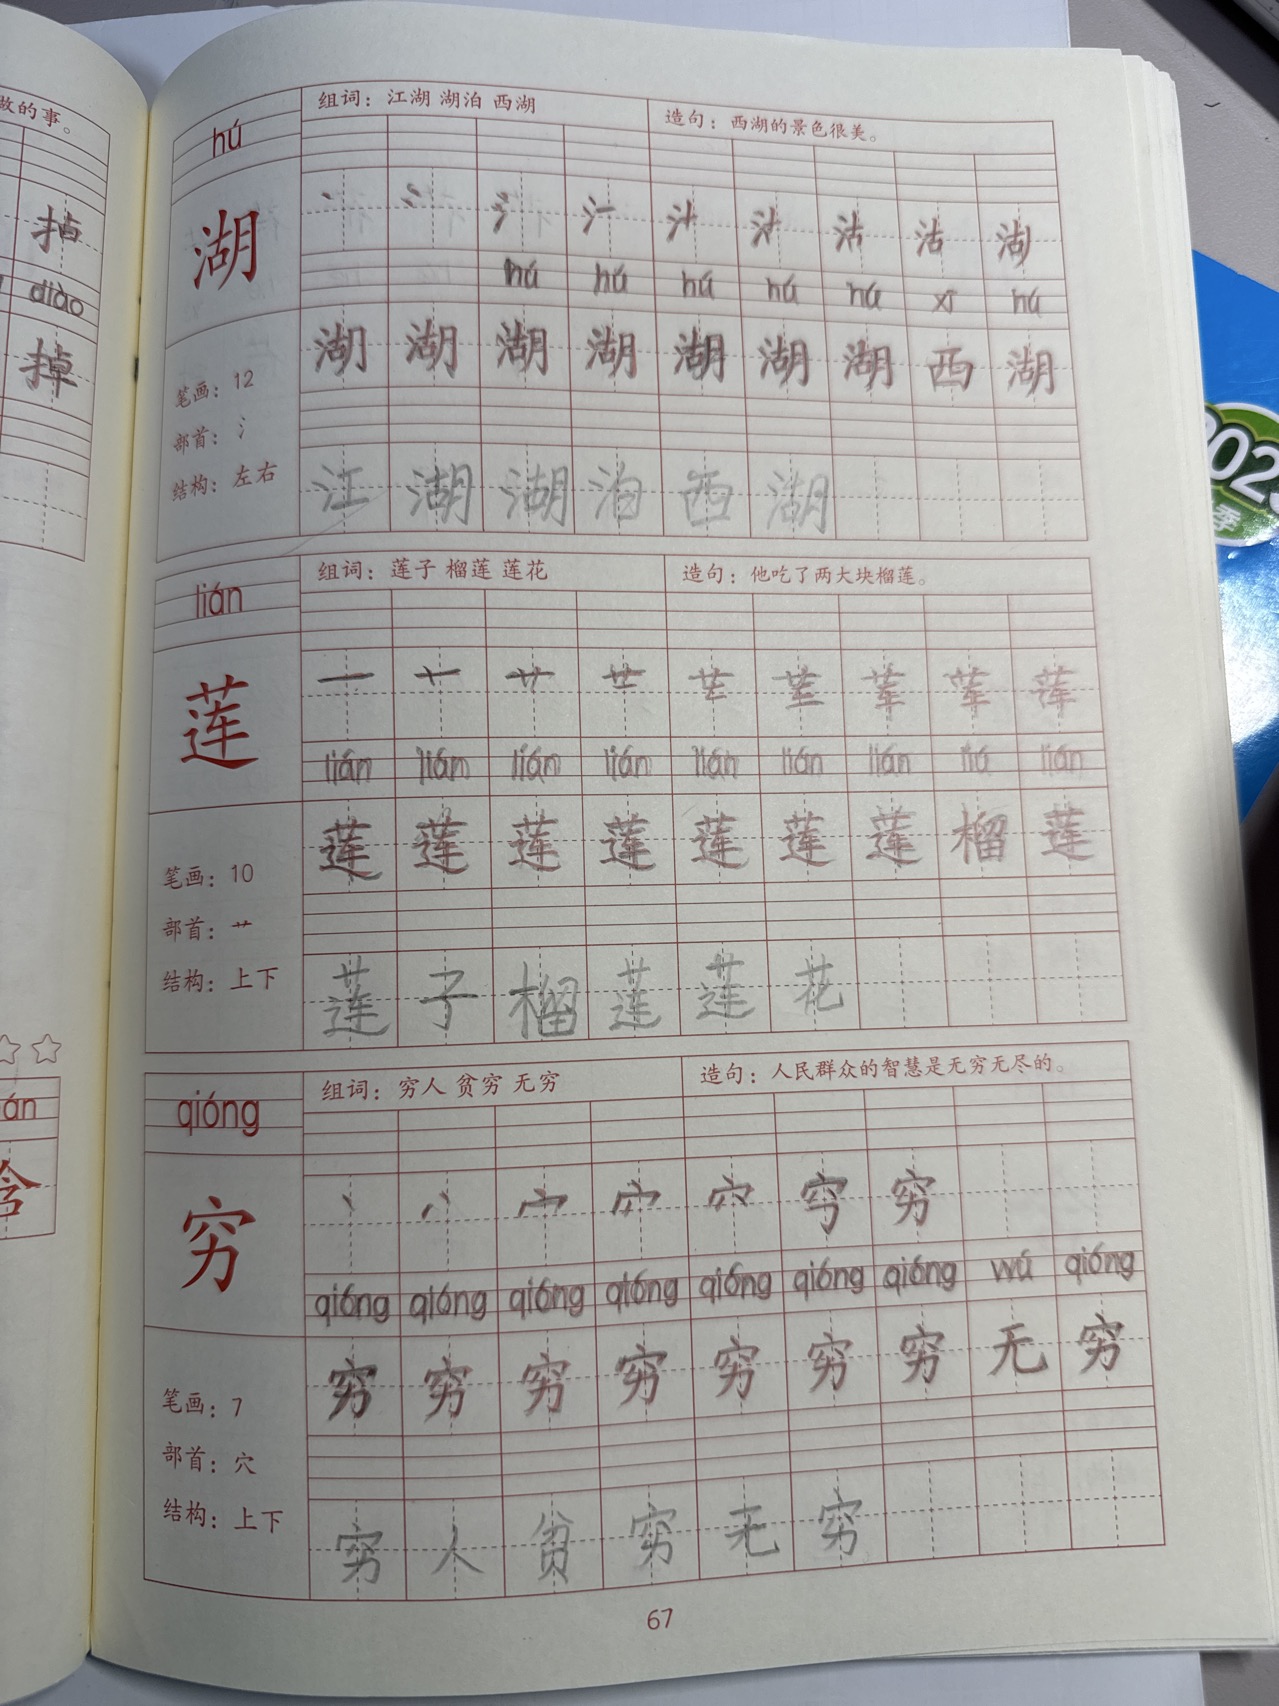 做的事。
掉
diào
掉
án
含
hú
组词：江湖 湖泊 西湖
造句：西湖的景色很美。
湖
hú hú hú hú hú xī hú
湖 湖 湖 湖 湖 湖 湖 西 湖
笔画：12
部首：氵
结构：左右
江 湖 湖 泊 西 湖
lián
组词：莲子 榴莲 莲花
造句：他吃了两大块榴莲。
莲
lián lián lián lián lián lián lián liú lián
莲 莲 莲 莲 莲 莲 莲 榴 莲
笔画：10
部首：艹
结构：上下
莲 子 榴 莲 莲 花
qióng
组词：穷人 贫穷 无穷
造句：人民群众的智慧是无穷无尽的。
穷
qióng qióng qióng qióng qióng qióng qióng wú qióng
穷 穷 穷 穷 穷 穷 穷 无 穷
笔画：7
部首：穴
结构：上下
穷 人 贫 穷 无 穷
67
季